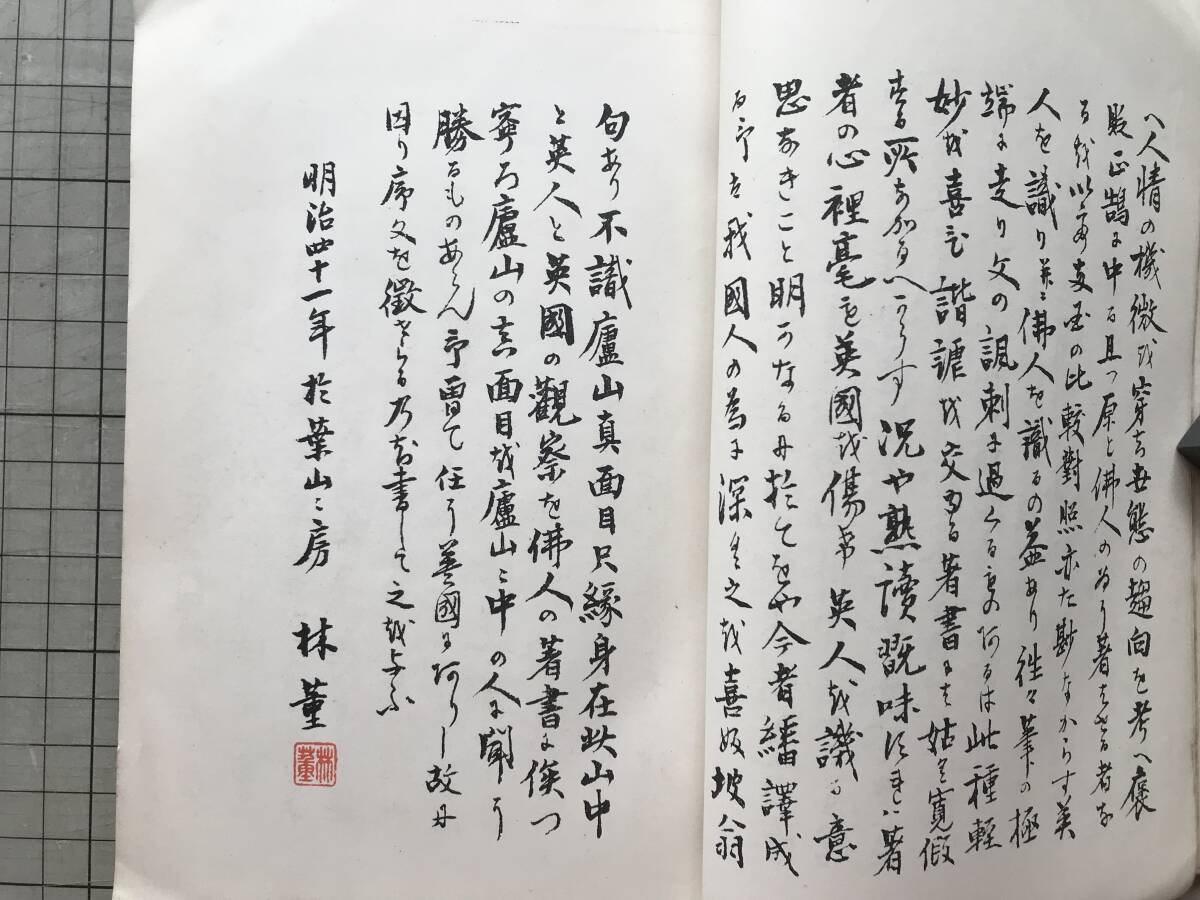 へ人情の機微を穿ち世態の趨向を考へ褒
貶正鵠に中る且つ原と佛人のゐり著はせる者な
るを以て両国の比較對照亦た尠なからす英
人を識り並に佛人を識るの益あり往々筆下の極
端に走り文の諷刺に過くるものあるは此種軽
妙を喜ひ諧謔を交ゆる著書には姑く寛假
する所なかるへからす況や熟讀翫味すれは著
者の心裡毫も英國を傷け英人を議る意
思なきこと明かなるに於てをや今者繙譯成
る予は我國人の為に深く之を喜ふ坡翁
句あり不識廬山真面目只縁身在此山中
と英人と英國の觀察を佛人の著書に俟つ
寧ろ廬山の真面目を廬山之中の人に聞くに
勝るものあらん予曽て任に英國に在りし故に
因り序文を徴せらる乃ち書して之を与ふ
明治四十一年於葉山之房 林董
林董